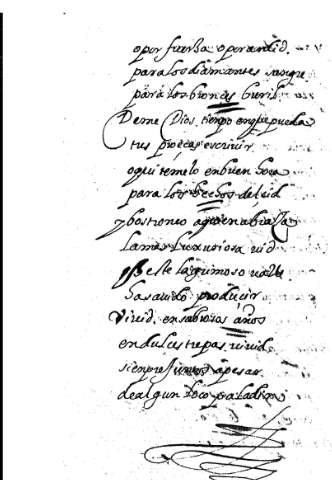 o por fuerza o por ardid
para los diamantes sangre
para los bronces buril
Deme Dios tiempo en que pueda
tus proeças escriuir
o quitemelo en buen ora
para los hechos del cid
y vos tronco a quien abraza
la mas luxuriosa vid
este lagrimoso valle
a sauido producir
Viuid en sabrosos años
en dulces trepas viuid
sienpre juntos a pesar
de algun loco paladin